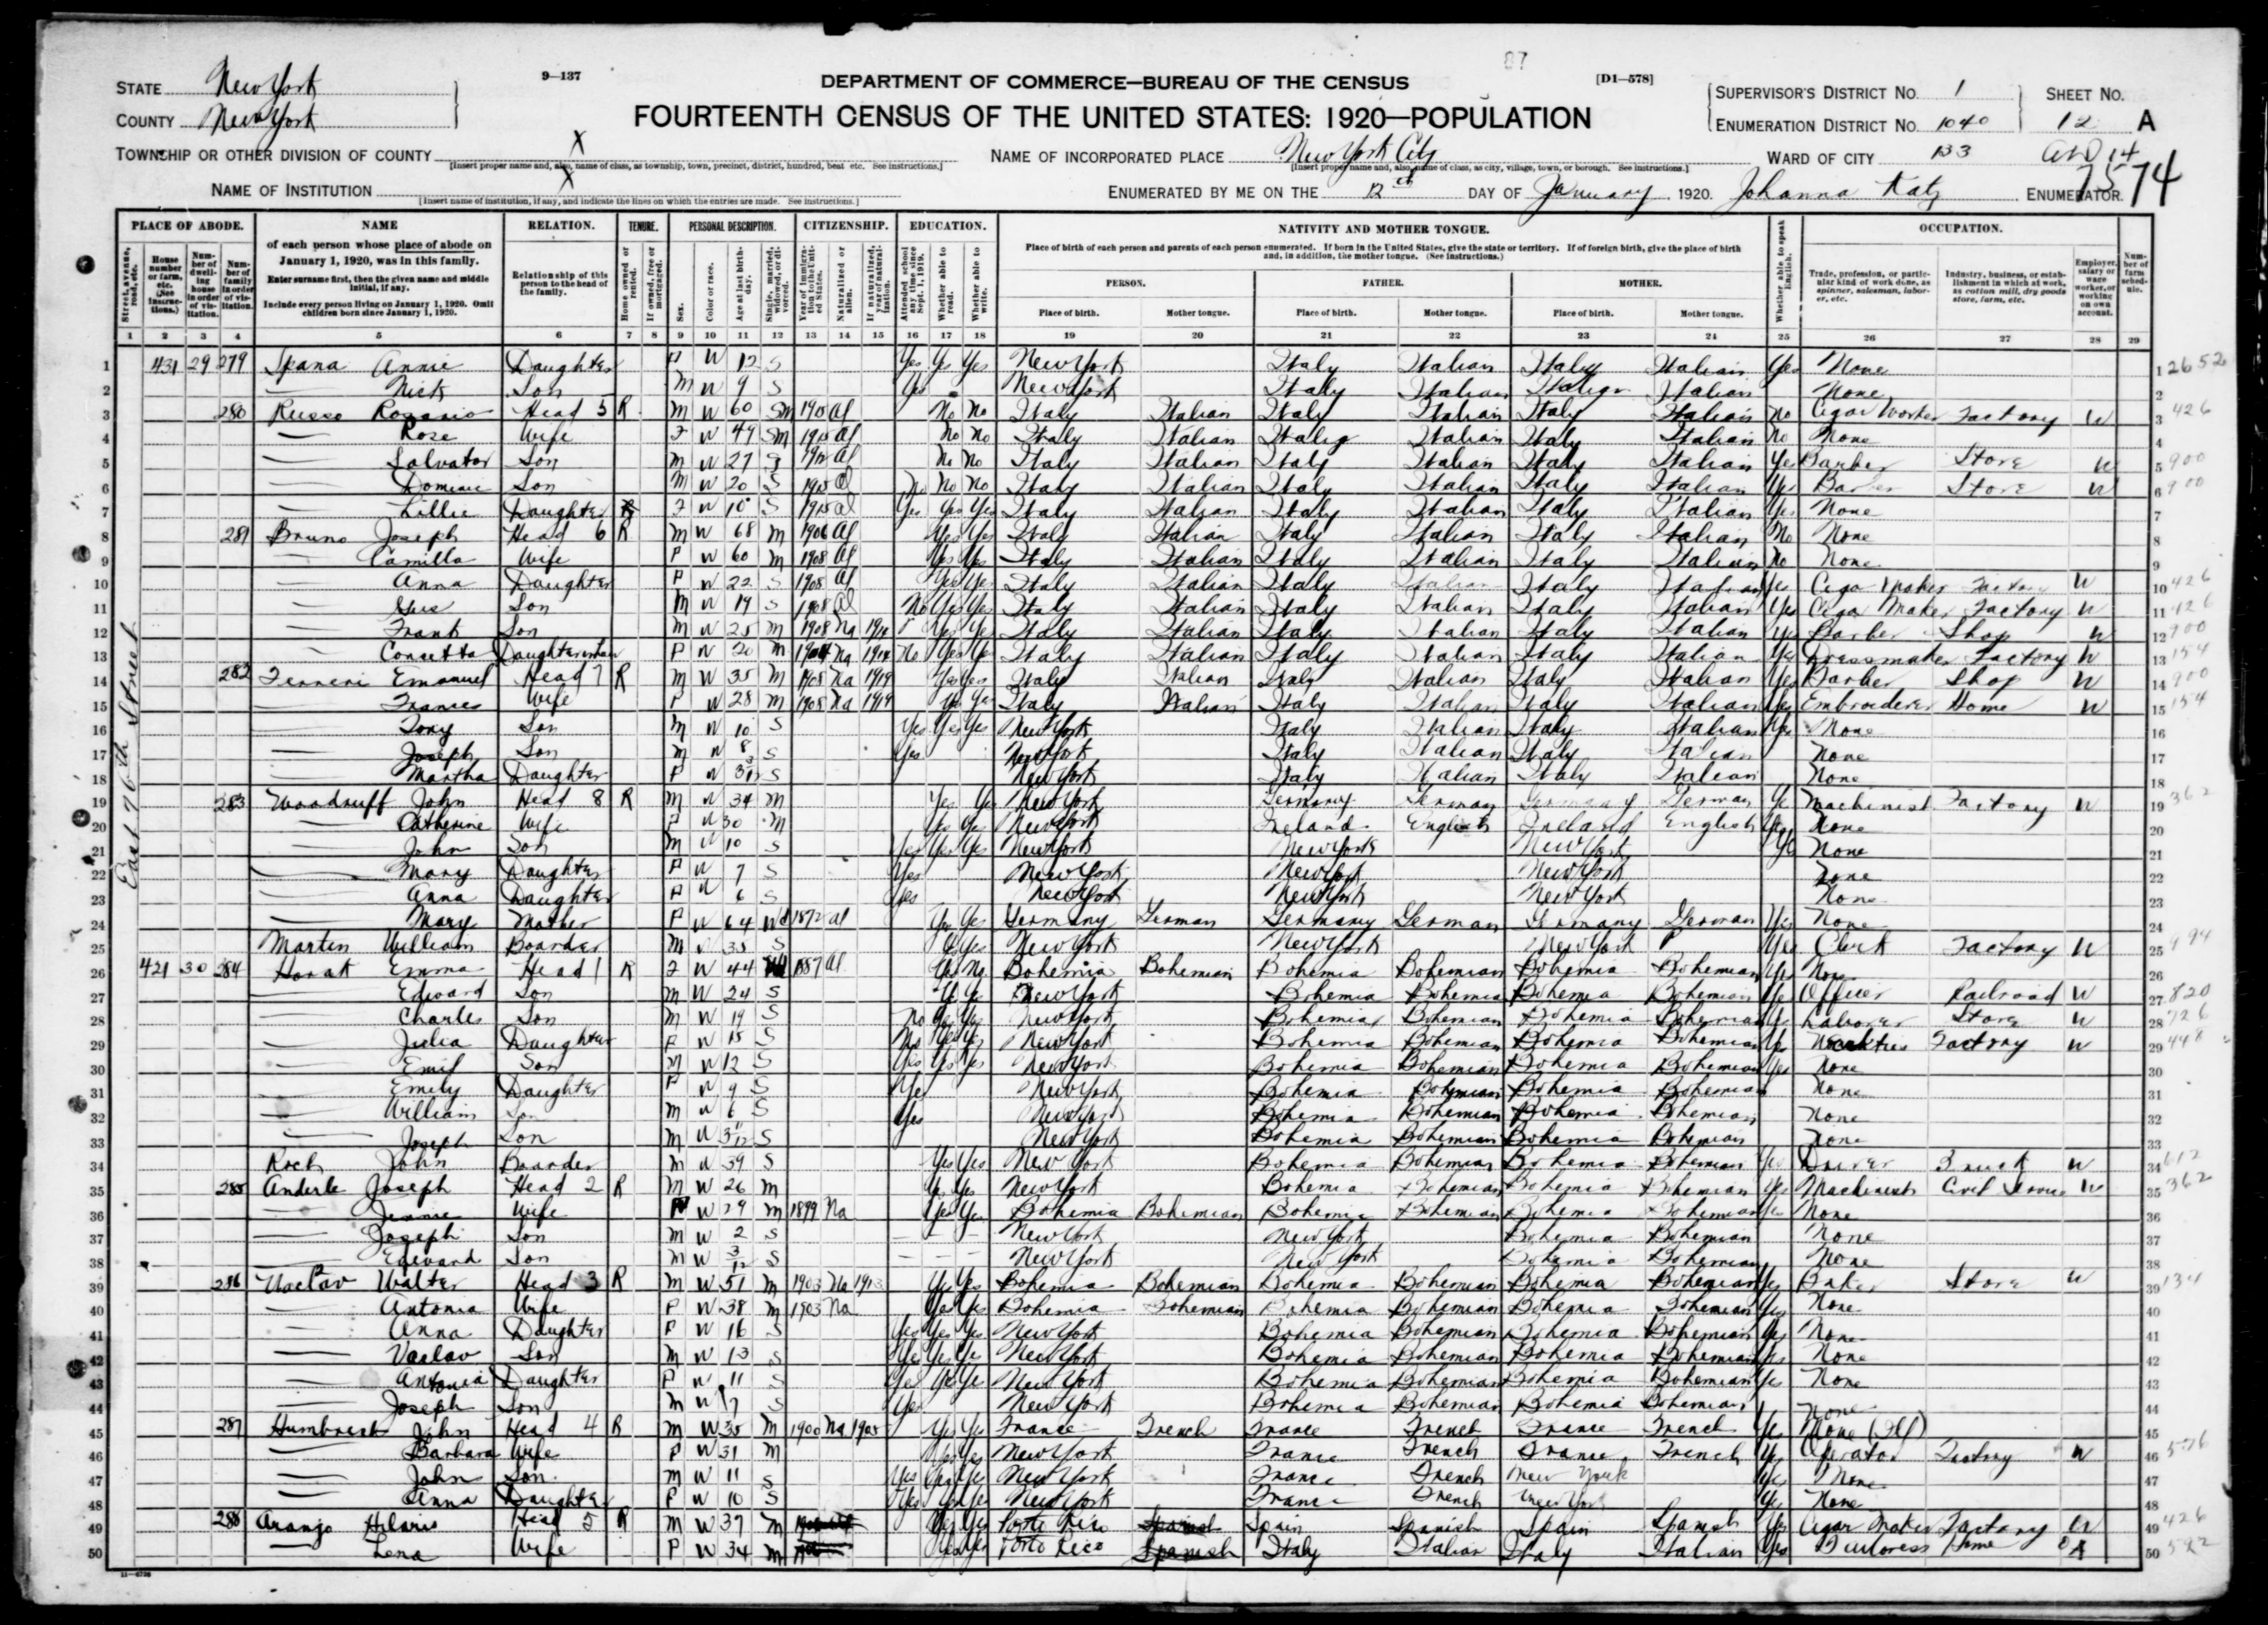 87
9—137
DEPARTMENT OF COMMERCE—BUREAU OF THE CENSUS
[D1—578]
STATE New York
COUNTY New York
FOURTEENTH CENSUS OF THE UNITED STATES: 1920—POPULATION
SUPERVISOR'S DISTRICT No. 1
ENUMERATION DISTRICT No. 1040
SHEET No.
12 A
TOWNSHIP OR OTHER DIVISION OF COUNTY X
[Insert proper name and, also, name of class, as township, town, precinct, district, hundred, beat etc. See instructions.]
NAME OF INCORPORATED PLACE New York City
[Insert proper name and, also, name of class, as city, village, town, or borough. See instructions.]
WARD OF CITY
7574
NAME OF INSTITUTION X
[Insert name of institution, if any, and indicate the lines on which the entries are made. See instructions.]
ENUMERATED BY ME ON THE 12th DAY OF January, 1920. Johanna Katz ENUMERATOR.
PLACE OF ABODE.
NAME
of each person whose place of abode on January 1, 1920, was in this family.
Enter surname first, then the given name and middle initial, if any.
Include every person living on January 1, 1920. Omit children born since January 1, 1920.
RELATION.
Relationship of this person to the head of the family.
TENURE.
PERSONAL DESCRIPTION.
CITIZENSHIP.
EDUCATION.
NATIVITY AND MOTHER TONGUE.
Place of birth of each person and parents of each person enumerated. If born in the United States, give the state or territory. If of foreign birth, give the place of birth and, in addition, the mother tongue. (See instructions.)
PERSON. FATHER. MOTHER.
Place of birth. Mother tongue. Place of birth. Mother tongue. Place of birth. Mother tongue.
Whether able to speak English.
OCCUPATION.
1 2 3 4 5 6 7 8 9 10 11 12 13 14 15 16 17 18 19 20 21 22 23 24 25 26 27 28 29
East 76th Street
1 431 29 279 Spana Annie Daughter F W 12 S Yes Yes Yes New York Italy Italian Italy Italian Yes None
2 Nick Son M W 9 S Yes New York Italy Italian Italy Italian None
3 280 Russo Rosario Head 5 R M W 60 M Al No No Italy Italian Italy Italian Italy Italian No Cigar Worker Factory W 426
4 Rose Wife F W 49 M 1915 Al No No Italy Italian Italy Italian Italy Italian No None
5 Salvator Son M W 27 S Al No No Italy Italian Italy Italian Italy Italian Yes Barber Store W 900
6 Son M W 20 S 1915 Al No No No Italy Italian Italy Italian Italy Italian Yes Barber Store W 900
7 Lillie Daughter F W 10 S 1915 Al Yes Yes Yes Italy Italian Italy Italian Italy Italian Yes None
8 281 Bruno Joseph Head 6 R M W 68 M 1906 Al Yes Yes Italy Italian Italy Italian Italy Italian No None
9 Camilla Wife F W 60 M 1908 Al Yes Yes Italy Italian Italy Italian Italy Italian No None
10 Anna Daughter F W 22 S 1908 Al Yes Yes Italy Italian Italy Italian Italy Italian Yes Cigar Maker Factory W 426
11 Gus Son M W 19 S 1908 Al No Yes Yes Italy Italian Italy Italian Italy Italian Yes Cigar Maker Factory W 426
12 Frank Son M W 25 M 1908 Na 1914 Yes Yes Italy Italian Italy Italian Italy Italian Yes Barber Shop W 900
13 Concetta Daughterinlaw F W 20 M Na 1914 No Yes Yes Italy Italian Italy Italian Italy Italian Yes Dressmaker Factory W 154
14 282 Emanuel Head 7 R M W 35 M 1908 Na 1919 Yes Yes Italy Italian Italy Italian Italy Italian Yes Barber Shop W 900
15 Frances Wife F W 28 M 1908 Na 1919 Yes Yes Italy Italian Italy Italian Italy Italian Yes Embroiderer Home W 154
16 Tony Son M W 10 S Yes Yes Yes New York Italy Italian Italy Italian Yes None
17 Joseph Son M W 8 S Yes New York Italy Italian Italy Italian None
18 Martha Daughter F W S New York Italy Italian Italy Italian None
19 283 Woodruff John Head 8 R M W 34 M Yes Yes New York Germany German Germany German Yes Machinist Factory W 362
20 Catherine Wife F W 30 M Yes Yes New York Ireland English Ireland English Yes None
21 John Son M W 10 S Yes Yes Yes New York New York New York Yes None
22 Mary Daughter F W 7 S Yes New York New York New York None
23 Anna Daughter F W 6 S Yes New York New York New York None
24 Mary Mother F W 64 Wd 1872 Al Yes Yes Germany German Germany German Germany German Yes None
25 Martin William Boarder M W 35 S Yes Yes New York New York New York Yes Clerk Factory W
26 421 30 284 Horak Emma Head 1 R F W 44 1887 Al Yes No Bohemia Bohemian Bohemia Bohemian Bohemia Bohemian Yes None
27 Edward Son M W 24 S Yes Yes New York Bohemia Bohemian Bohemia Bohemian Yes Officer Railroad W 820
28 Charles Son M W 19 S No Yes Yes New York Bohemia Bohemian Bohemia Bohemian Yes Laborer Store W 726
29 Julia Daughter F W 15 S No Yes Yes New York Bohemia Bohemian Bohemia Bohemian Yes Neckties Factory W 448
30 Emil Son M W 12 S Yes Yes Yes New York Bohemia Bohemian Bohemia Bohemian Yes None
31 Emily Daughter F W 9 S Yes New York Bohemia Bohemian Bohemia Bohemian None
32 William Son M W 6 S Yes New York Bohemia Bohemian Bohemia Bohemian None
33 Joseph Son M W 3 11/12 S New York Bohemia Bohemian Bohemia Bohemian None
34 Koch John Boarder M W 39 S Yes Yes New York Bohemia Bohemian Bohemia Bohemian Yes Driver W 612
35 285 Anderle Joseph Head 2 R M W 26 M Yes Yes New York Bohemia Bohemian Bohemia Bohemian Yes Machinist Civil Service W 362
36 Jennie Wife F W 29 M 1899 Na Yes Yes Bohemia Bohemian Bohemia Bohemian Bohemia Bohemian Yes None
37 Joseph Son M W 2 S New York New York Bohemia Bohemian None
38 Edward Son M W 3/12 S New York New York Bohemia Bohemian None
39 286 Walter Head 3 R M W 51 M 1903 Na 1913 Yes Yes Bohemia Bohemian Bohemia Bohemian Bohemia Bohemian Yes Baker Store W 134
40 Antonia Wife F W 38 M 1903 Na Yes Yes Bohemia Bohemian Bohemia Bohemian Bohemia Bohemian Yes None
41 Anna Daughter F W 16 S Yes Yes Yes New York Bohemia Bohemian Bohemia Bohemian Yes None
42 Vaclav Son M W 13 S Yes Yes Yes New York Bohemia Bohemian Bohemia Bohemian Yes None
43 Antonia Daughter F W 11 S Yes Yes Yes New York Bohemia Bohemian Bohemia Bohemian Yes None
44 Joseph Son M W 7 S Yes New York Bohemia Bohemian Bohemia Bohemian None
45 287 Humbrecht John Head 4 R M W 35 M 1900 Na 1905 Yes Yes France French France French France French Yes None
46 Barbara Wife F W 31 M Yes Yes New York France French France French Yes Operator Factory W
47 John Son M W 11 S Yes Yes Yes New York France French New York Yes None
48 Anna Daughter F W 10 S Yes Yes Yes New York France French New York Yes None
49 288 Aranjo Hilario Head 5 R M W 37 M Yes Yes Porto Rico Spanish Spain Spanish Spain Spanish Yes Cigar Maker Factory W 426
50 Lena Wife F W 34 M Yes Yes Porto Rico Spanish Italy Italian Italy Italian Yes Home